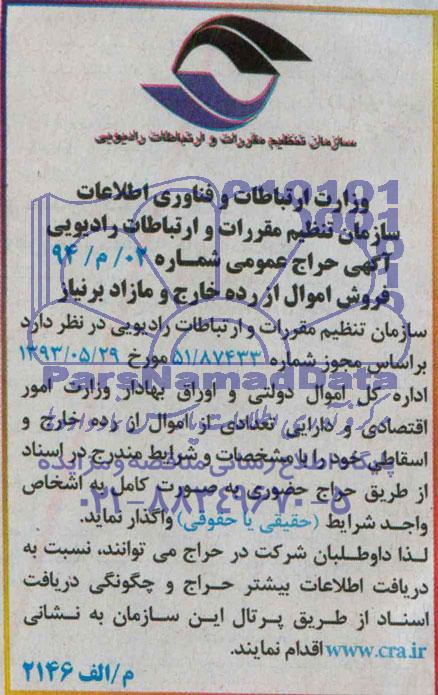 سازمان تنظیم مقررات و ارتباطات رادیویی
وزارت ارتباطات و فناوری اطلاعات
سازمان تنظیم مقررات و ارتباطات رادیویی
آگهی حراج عمومی شماره ۰۲/م/۹۴
فروش اموال از رده خارج و مازاد برنیاز
سازمان تنظیم مقررات و ارتباطات رادیویی در نظر دارد
براساس مجوز شماره ۵۱/۸۷۴۳۳ مورخ ۱۳۹۳/۰۵/۲۹
ParsNamadData
اداره کل اموال دولتی و اوراق بهادار وزارت امور
اقتصادی و دارایی تعدادی از اموال از رده خارج و
اسقاطی خود را با مشخصات و شرایط مندرج در اسناد
پایگاه اطلاع رسانی مناقصه و مزایده
از طریق حراج حضوری به صورت کامل به اشخاص
۰۲۱-۸۸۳۴۹۶۷۰-۵
واجد شرایط (حقیقی یا حقوقی) واگذار نماید.
لذا داوطلبان شرکت در حراج می توانند، نسبت به
دریافت اطلاعات بیشتر حراج و چگونگی دریافت
اسناد از طریق پرتال این سازمان به نشانی
www.cra.ir اقدام نمایند.
م/الف ۲۱۴۶